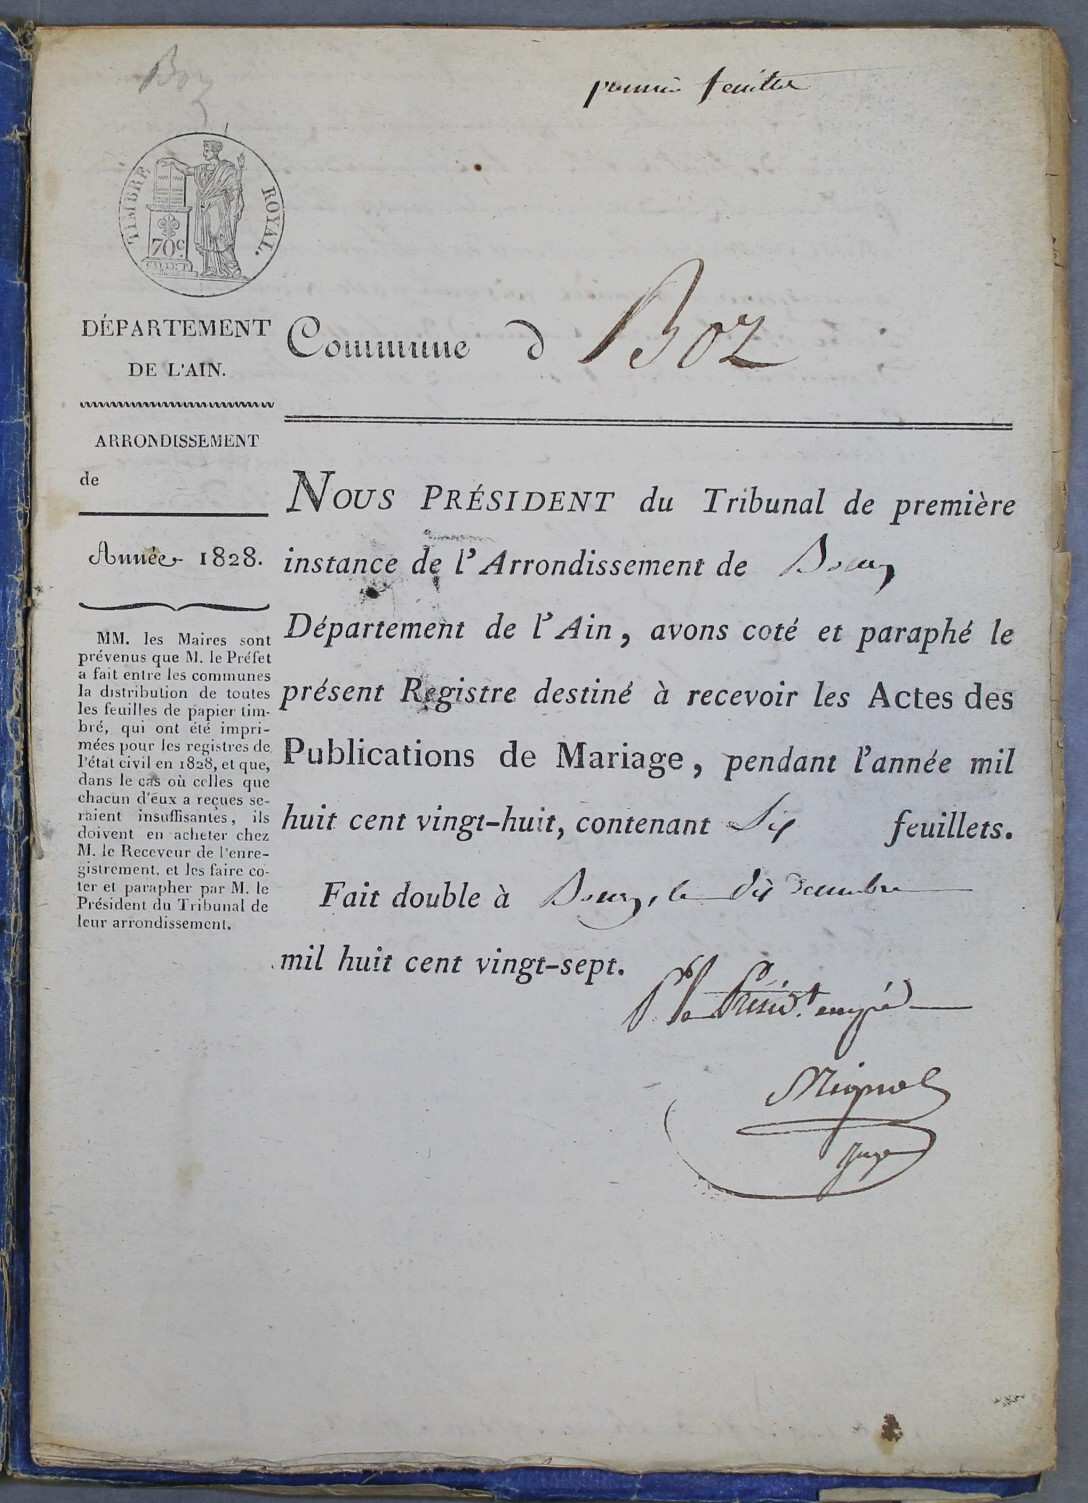 Boz
premier feuillet
TIMBRE ROYAL.
70c
DÉPARTEMENT
DE L'AIN.
ARRONDISSEMENT
de
Année 1828.
MM. les Maires sont
prévenus que M. le Préfet
a fait entre les communes
la distribution de toutes
les feuilles de papier tim-
bré, qui ont été impri-
mées pour les registres de
l'état civil en 1828, et que,
dans le cas où celles que
chacun d'eux a reçues se-
raient insuffisantes, ils
doivent en acheter chez
M. le Receveur de l'enre-
gistrement, et les faire co-
ter et parapher par M. le
Président du Tribunal de
leur arrondissement.
Commune d Boz
NOUS PRÉSIDENT du Tribunal de première
instance de l'Arrondissement de Bourg
Département de l'Ain, avons coté et paraphé le
présent Registre destiné à recevoir les Actes des
Publications de Mariage, pendant l'année mil
huit cent vingt-huit, contenant Six feuillets.
Fait double à Bourg, le dix décembre
mil huit cent vingt-sept.
Pr le Présidt. empêché
juge